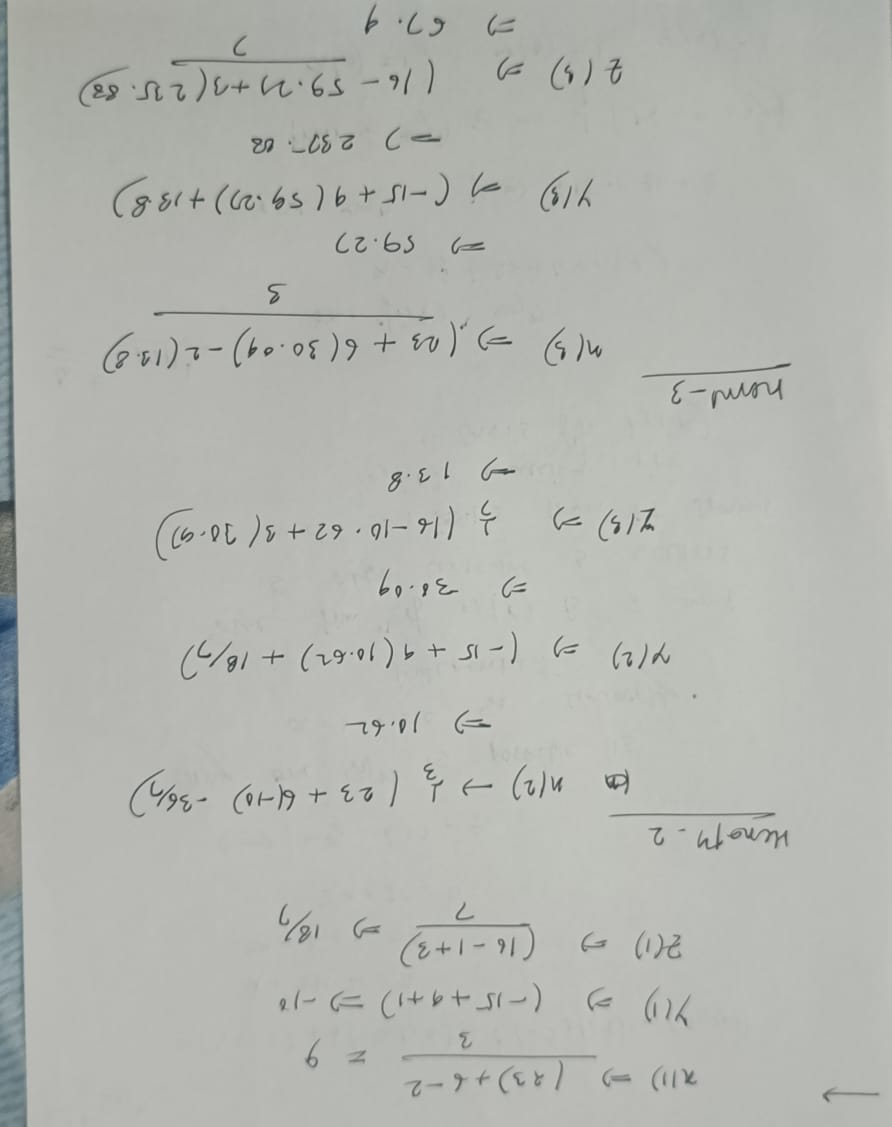 → x(1) ⇒ (23)+6-2 / 3 = 9
Y(1) ⇒ (-15+9+1) ⇒ -10
Z(1) ⇒ (16-1+3) / 7 ⇒ 18/7
- 2
x(2) → 1/3 (23+6(-10) -36/7)
⇒ 10.62
Y(2) ⇒ (-15+9(10.62)+18/7)
⇒ 30.09
Z(3) ⇒ 1/7 (16-10.62+3(30.9))
⇒ 13.8
- 3
x(3) ⇒ (23+6(30.09)-2(13.8) / 3
⇒ 59.27
Y(3) ⇒ (-15+9(59.27)+13.8)
⇒
Z(3) ⇒ (16-59.27+3(235.83) / 7
⇒ 67.9